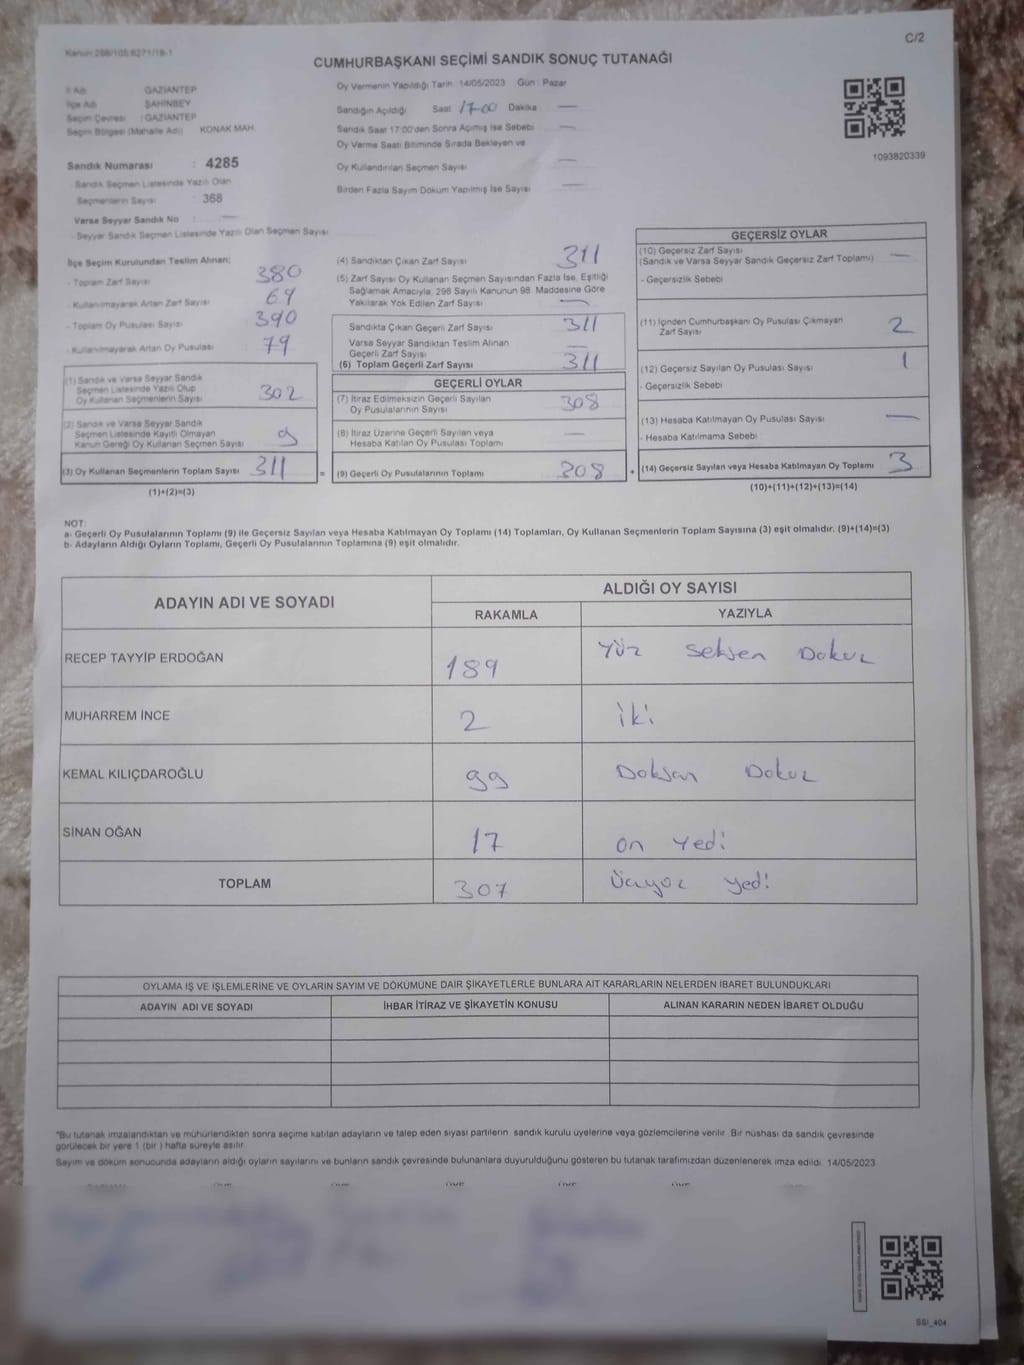 Kanun:298/105:6271/18-1
C/2
CUMHURBAŞKANI SEÇİMİ SANDIK SONUÇ TUTANAĞI
İl Adı : GAZİANTEP
İlçe Adı : ŞAHİNBEY
Seçim Çevresi : GAZİANTEP
Seçim Bölgesi (Mahalle Adı) KONAK MAH.
Sandık Numarası : 4285
Sandık Seçmen Listesinde Yazılı Olan
Seçmenlerin Sayısı : 368
Varsa Seyyar Sandık No : —
- Seyyar Sandık Seçmen Listesinde Yazılı Olan Seçmen Sayısı
Oy Vermenin Yapıldığı Tarih 14/05/2023 Gün : Pazar
Sandığın Açıldığı Saat 17:00 Dakika : —
Sandık Saat 17:00'den Sonra Açılmış İse Sebebi —
Oy Verme Saati Bitiminde Sırada Bekleyen ve
Oy Kullandırılan Seçmen Sayısı —
Birden Fazla Sayım Döküm Yapılmış İse Sayısı —
1093820339
İlçe Seçim Kurulundan Teslim Alınan;
- Toplam Zarf Sayısı 380
- Kullanılmayarak Artan Zarf Sayısı 69
- Toplam Oy Pusulası Sayısı 390
- Kullanılmayarak Artan Oy Pusulası 79
(1) Sandık ve Varsa Seyyar Sandık
Seçmen Listesinde Yazılı Olup
Oy Kullanan Seçmenlerin Sayısı 302
(2) Sandık ve Varsa Seyyar Sandık
Seçmen Listesinde Kayıtlı Olmayan
Kanun Gereği Oy Kullanan Seçmen Sayısı 9
(3) Oy Kullanan Seçmenlerin Toplam Sayısı 311 =
(1)+(2)=(3)
(4) Sandıktan Çıkan Zarf Sayısı 311
(5) Zarf Sayısı Oy Kullanan Seçmen Sayısından Fazla İse, Eşitliği
Sağlamak Amacıyla, 298 Sayılı Kanunun 98. Maddesine Göre
Yakılarak Yok Edilen Zarf Sayısı —
Sandıkta Çıkan Geçerli Zarf Sayısı 311
Varsa Seyyar Sandıktan Teslim Alınan
Geçerli Zarf Sayısı —
(6) Toplam Geçerli Zarf Sayısı 311
GEÇERLİ OYLAR
(7) İtiraz Edilmeksizin Geçerli Sayılan
Oy Pusulalarının Sayısı 308
(8) İtiraz Üzerine Geçerli Sayılan veya
Hesaba Katılan Oy Pusulası Toplamı —
(9) Geçerli Oy Pusulalarının Toplamı 308 +
GEÇERSİZ OYLAR
(10) Geçersiz Zarf Sayısı
(Sandık ve Varsa Seyyar Sandık Geçersiz Zarf Toplamı) —
- Geçersizlik Sebebi
(11) İçinden Cumhurbaşkanı Oy Pusulası Çıkmayan
Zarf Sayısı 2
(12) Geçersiz Sayılan Oy Pusulası Sayısı 1
- Geçersizlik Sebebi
(13) Hesaba Katılmayan Oy Pusulası Sayısı —
- Hesaba Katılmama Sebebi
(14) Geçersiz Sayılan veya Hesaba Katılmayan Oy Toplamı 3
(10)+(11)+(12)+(13)=(14)
NOT:
a- Geçerli Oy Pusulalarının Toplamı (9) ile Geçersiz Sayılan veya Hesaba Katılmayan Oy Toplamı (14) Toplamları, Oy Kullanan Seçmenlerin Toplam Sayısına (3) eşit olmalıdır. (9)+(14)=(3)
b- Adayların Aldığı Oyların Toplamı, Geçerli Oy Pusulalarının Toplamına (9) eşit olmalıdır.
ADAYIN ADI VE SOYADI
ALDIĞI OY SAYISI
RAKAMLA YAZIYLA
RECEP TAYYİP ERDOĞAN 189 Yüz Seksen Dokuz
MUHARREM İNCE 2 iki
KEMAL KILIÇDAROĞLU 99 Doksan Dokuz
SİNAN OĞAN 17 on Yedi
TOPLAM 307 Üçyüz yedi
OYLAMA İŞ VE İŞLEMLERİNE VE OYLARIN SAYIM VE DÖKÜMÜNE DAİR ŞİKAYETLERLE BUNLARA AİT KARARLARIN NELERDEN İBARET BULUNDUKLARI
ADAYIN ADI VE SOYADI İHBAR İTİRAZ VE ŞİKAYETİN KONUSU ALINAN KARARIN NEDEN İBARET OLDUĞU
"Bu tutanak imzalandıktan ve mühürlendikten sonra seçime katılan adayların ve talep eden siyasi partilerin sandık kurulu üyelerine veya gözlemcilerine verilir. Bir nüshası da sandık çevresinde
görülecek bir yere 1 (bir) hafta süreyle asılır.
Sayım ve döküm sonucunda adayların aldığı oyların sayılarını ve bunların sandık çevresinde bulunanlara duyurulduğunu gösteren bu tutanak tarafımızdan düzenlenerek imza edildi. 14/05/2023
SSI_404